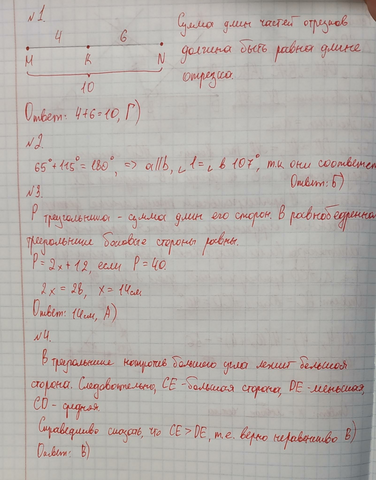 №1
4 6
M K N
10
Сумма длин частей отрезков
должна быть равна длине
отрезка.
Ответ: 4+6=10, Г)
№2
65°+115°=180°, => a||b, ∟1=∟ в 107°, т.к они соответст
Ответ: Б)
№3.
P треугольника - сумма длин его сторон. В равнобедренно
треугольнике боковые стороны равны.
P=2x+12, если P=40.
2x=28, x=14см
Ответ: 14см, А)
№4.
В треугольнике напротив большего угла лежит большая
сторона. Следовательно, CE-большая сторона, DE-меньшая,
CD-средняя
Справедливо сказать, что CE>DE, т.е. верно неравенство В)
Ответ: В)